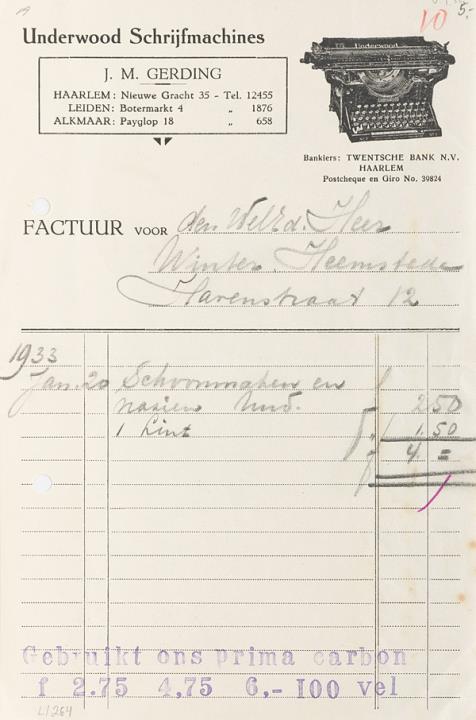 10 5:-
Underwood Schrijfmachines
J. M. GERDING
HAARLEM: Nieuwe Gracht 35 - Tel. 12455
LEIDEN: Botermarkt 4 „ 1876
ALKMAAR: Payglop 18 „ 658
Underwood
Bankiers: TWENTSCHE BANK N.V.
HAARLEM
Postcheque en Giro No. 39824
FACTUUR VOOR den WelEd. Heer
Winter, Heemstede
Havenstraat 12
1933
Jan. 20 Schoonmaken en f
nazien Und. 2.50
1 Lint „ 1.50
f 4 =
Gebruikt ons prima carbon
f 2.75 4,75 6,- 100 vel
L1264